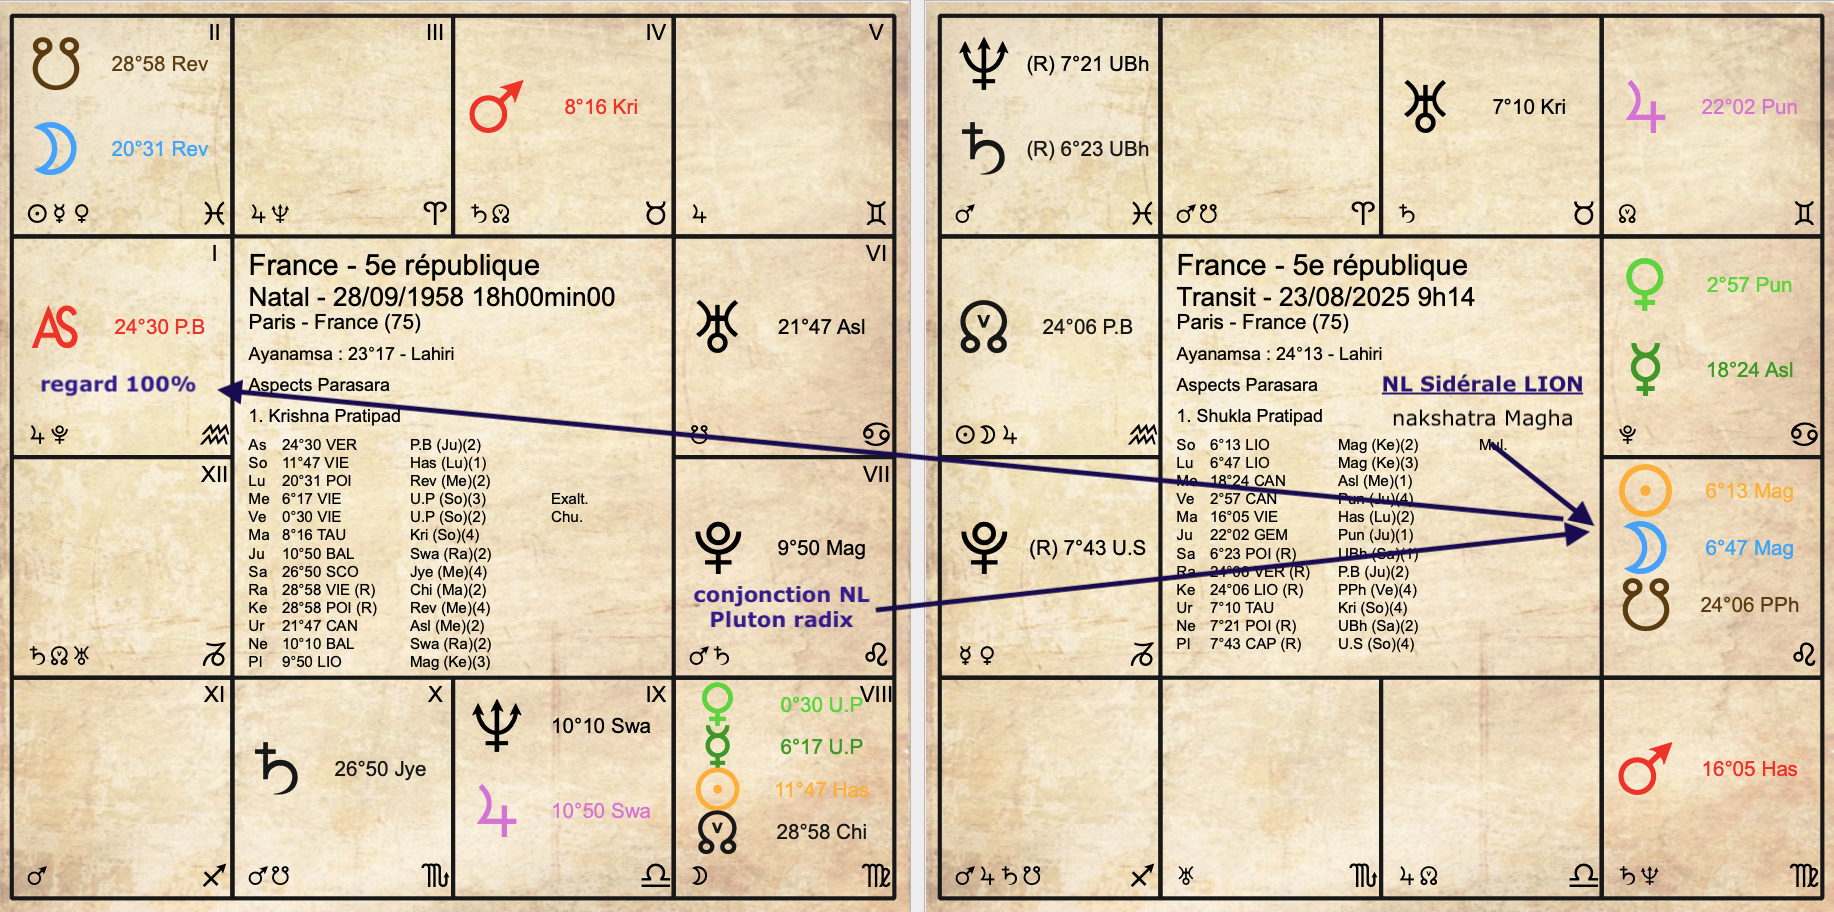 II
28°58 Rev
20°31 Rev
III
IV
8°16 Kri
V
I
AS 24°30 P.B
regard 100%
France - 5e république
Natal - 28/09/1958 18h00min00
Paris - France (75)
Ayanamsa : 23°17 - Lahiri
Aspects Parasara
1. Krishna Pratipad
As 24°30 VER P.B (Ju)(2)
So 11°47 VIE Has (Lu)(1)
Lu 20°31 POI Rev (Me)(2)
Me 6°17 VIE U.P (So)(3) Exalt.
Ve 0°30 VIE U.P (So)(2) Chu.
Ma 8°16 TAU Kri (So)(4)
Ju 10°50 BAL Swa (Ra)(2)
Sa 26°50 SCO Jye (Me)(4)
Ra 28°58 VIE (R) Chi (Ma)(2)
Ke 28°58 POI (R) Rev (Me)(4)
Ur 21°47 CAN Asl (Me)(2)
Ne 10°10 BAL Swa (Ra)(2)
Pl 9°50 LIO Mag (Ke)(3)
VI
21°47 Asl
XII
VII
9°50 Mag
conjonction NL
Pluton radix
XI
X
26°50 Jye
IX
10°10 Swa
10°50 Swa
VIII
0°30 U.P
6°17 U.P
11°47 Has
28°58 Chi
(R) 7°21 UBh
(R) 6°23 UBh
7°10 Kri
22°02 Pun
24°06 P.B
France - 5e république
Transit - 23/08/2025 9h14
Paris - France (75)
Ayanamsa : 24°13 - Lahiri
Aspects Parasara
NL Sidérale LION
1. Shukla Pratipad
nakshatra Magha
So 6°13 LIO Mag (Ke)(2) Mul.
Lu 6°47 LIO Mag (Ke)(3)
Me 18°24 CAN Asl (Me)(1)
Ve 2°57 CAN Pun (Ju)(4)
Ma 16°05 VIE Has (Lu)(2)
Ju 22°02 GEM Pun (Ju)(1)
Sa 6°23 POI (R) UBh (Sa)(1)
Ra 24°06 VER (R) P.B (Ju)(2)
Ke 24°06 LIO (R) PPh (Ve)(4)
Ur 7°10 TAU Kri (So)(4)
Ne 7°21 POI (R) UBh (Sa)(2)
Pl 7°43 CAP (R) U.S (So)(4)
2°57 Pun
18°24 Asl
(R) 7°43 U.S
6°13 Mag
6°47 Mag
24°06 PPh
16°05 Has